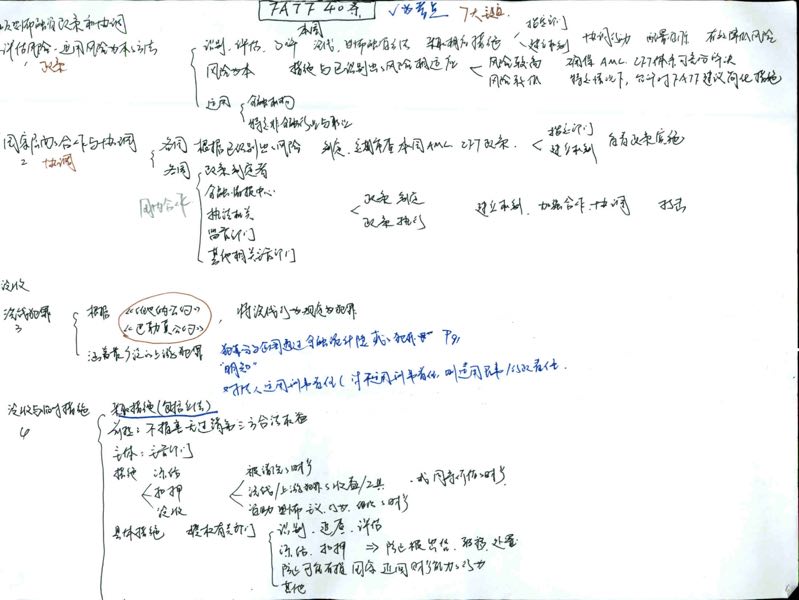 FATF 40条 ✓为考点 7大主题
反恐怖融资政策和协调
评估风险、适用风险为本方法
1 政策
本国
识别、评估、了解 洗钱、恐怖融资风险 采取相应措施
指定部门
建立机制
协调行动 配置资源 有效降低风险
风险为本 措施与已识别出风险相适应
风险较高 确保AML、CFT体系可充分解决
风险较低 特定情况下,允许对FATF建议简化措施
适用
金融机构
特定非金融行业与职业
国家层面合作与协调
2 协调
各国 根据已识别出风险 制定、定期审查本国AML、CFT政策、
指定部门
建立机制
负责政策实施
国内合作
各国
政策制定者
金融情报中心
执法机关
监管部门
其他相关主管部门
政策制定
政策执行
建立机制、加强合作、协调 打击
没收
洗钱犯罪
3
根据
《维也纳公约》
《巴勒莫公约》
,将洗钱行为规定为犯罪
涵盖最广泛的上游犯罪
P9,
"明知"
对法人适用刑事责任(若不适用刑事责任,则适用民事/行政责任.
没收与临时措施
4
采取措施(包括立法)
前提:不损害无过错第三方合法权益
主体:主管部门
措施
冻结
扣押
没收
被清洗的财产
洗钱/上游犯罪的收益/工具
资助恐怖主义、行为、组织的财产
或同等价值的财产
具体措施 授权有关部门
识别、追查、评估
冻结、扣押 ⇒ 防止被出售、转移、处置
防止可能有损国家追回财产能力的行为
其他